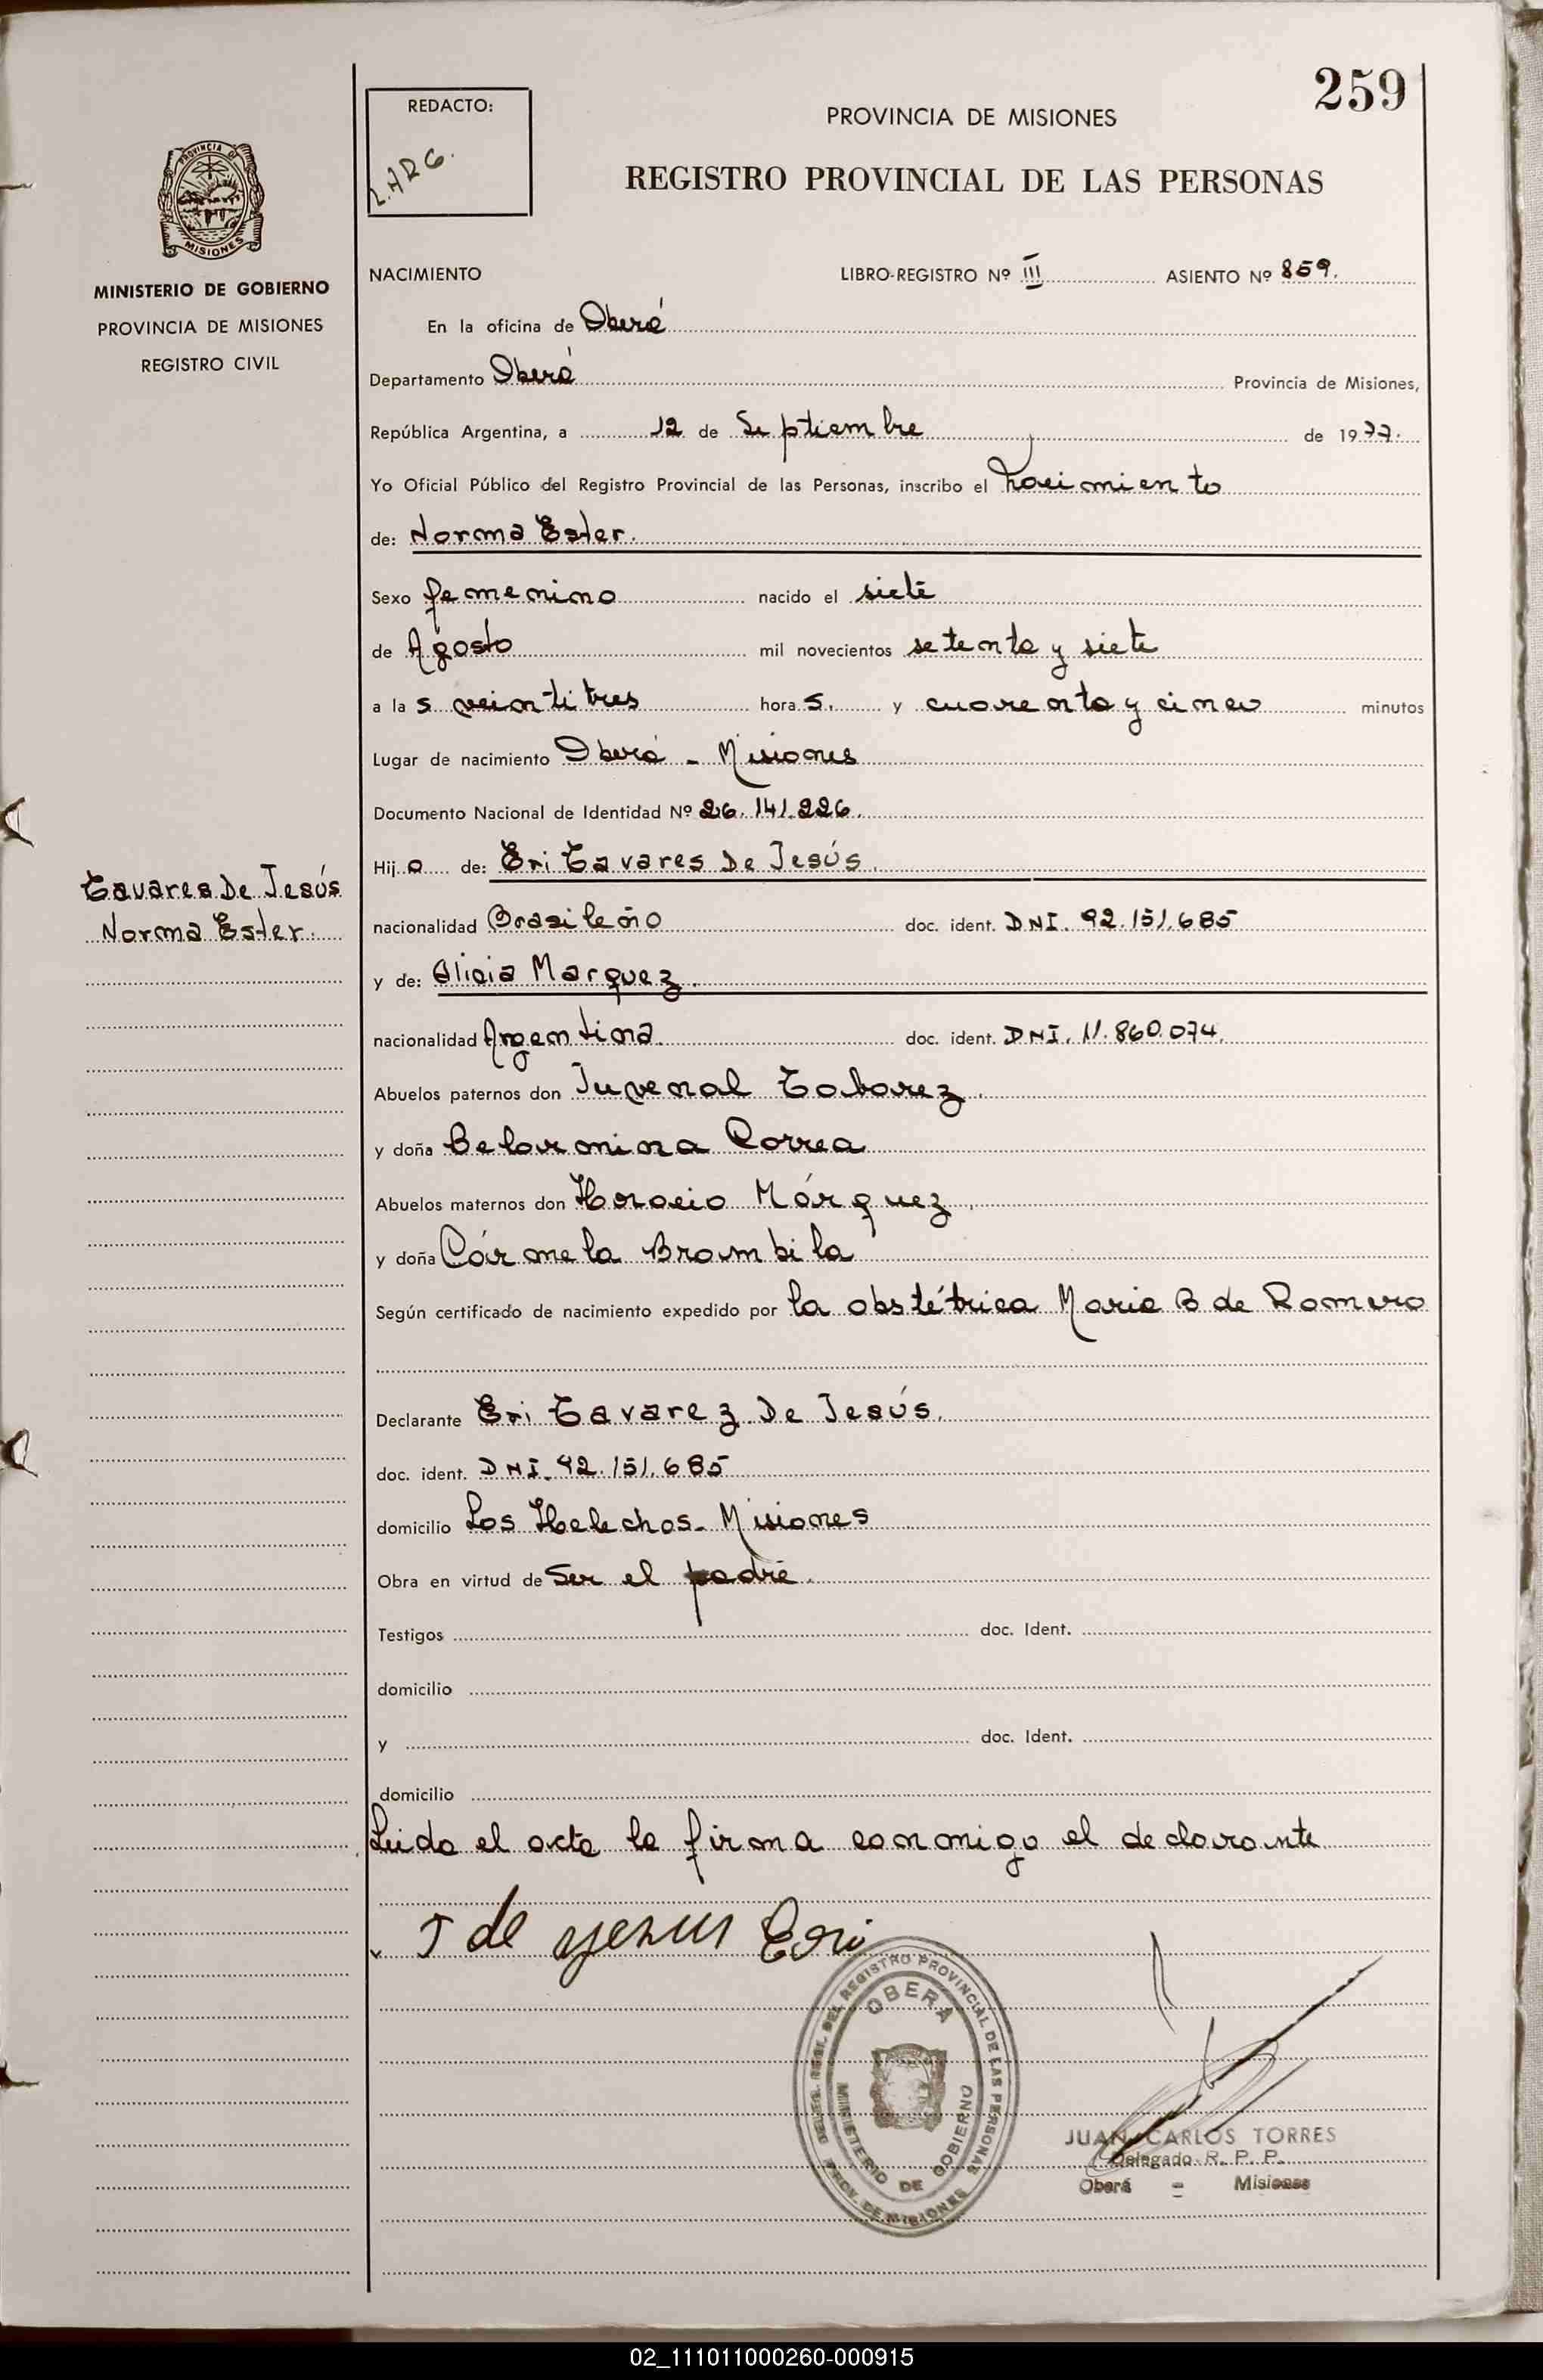 259
REDACTO:
L.ARG.
PROVINCIA DE MISIONES
REGISTRO PROVINCIAL DE LAS PERSONAS
PROVINCIA DE
MISIONES
MINISTERIO DE GOBIERNO
PROVINCIA DE MISIONES
REGISTRO CIVIL
NACIMIENTO LIBRO-REGISTRO Nº III ASIENTO Nº 859.
En la oficina de Oberá
Departamento Oberá Provincia de Misiones,
República Argentina, a 12 de Septiembre de 1977.
Yo Oficial Público del Registro Provincial de las Personas, inscribo el nacimiento
de: Norma Ester.
Sexo femenino nacido el siete
de Agosto mil novecientos setenta y siete
a las veintitres horas. y cuarenta y cinco minutos
Lugar de nacimiento Oberá - Misiones
Documento Nacional de Identidad Nº 26.141.226.
Hija de: Eri Tavares De Jesús.
Tavares De Jesús
Norma Ester.
nacionalidad Brasileño doc. ident. DNI. 92.151.685
y de: Alicia Marquez.
nacionalidad Argentina. doc. ident. DNI. 11.860.074.
Abuelos paternos don Juvenal Tabarez.
y doña Belarmina Correa
Abuelos maternos don Horacio Márquez,
y doña Cármela Brambila
Según certificado de nacimiento expedido por la obstétrica Maria B de Romero
Declarante Eri Tavarez De Jesús.
doc. ident. DNI. 92.151.685
domicilio Los Helechos - Misiones
Obra en virtud de Ser el padre.
Testigos doc. Ident.
domicilio
y doc. Ident.
domicilio
Leida el acta la firma conmigo el declarante
T de yesus Eri
DEL REGISTRO PROVINCIAL DE LAS PERSONAS
OBERA
MINISTERIO DE GOBIERNO
PROV. DE MISIONES
JUAN CARLOS TORRES
Delegado R. P. P.
Oberá - Misiones
02_111011000260-000915